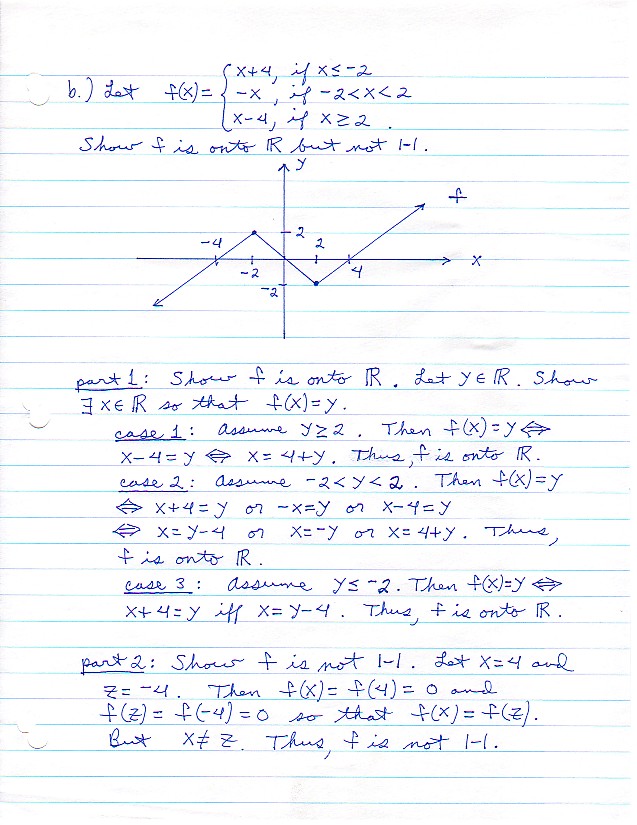 b.) Let f(x) = { x+4, if x ≤ -2
-x, if -2 < x < 2
x-4, if x ≥ 2 .
Show f is onto ℝ but not 1-1.
y
f
-4 2 2
x
-2 4
-2
part 1: Show f is onto ℝ. Let y ∈ ℝ. Show
∃ x ∈ ℝ so that f(x) = y.
case 1: Assume y ≥ 2. Then f(x) = y ⇔
x-4 = y ⇔ x = 4+y. Thus, f is onto ℝ.
case 2: Assume -2 < y < 2. Then f(x) = y
⇔ x+4 = y or -x = y or x-4 = y
⇔ x = y-4 or x = -y or x = 4+y. Thus,
f is onto ℝ.
case 3: Assume y ≤ -2. Then f(x) = y ⇔
x+4 = y iff x = y-4. Thus, f is onto ℝ.
part 2: Show f is not 1-1. Let x = 4 and
z = -4. Then f(x) = f(4) = 0 and
f(z) = f(-4) = 0 so that f(x) = f(z).
But x ≠ z. Thus, f is not 1-1.